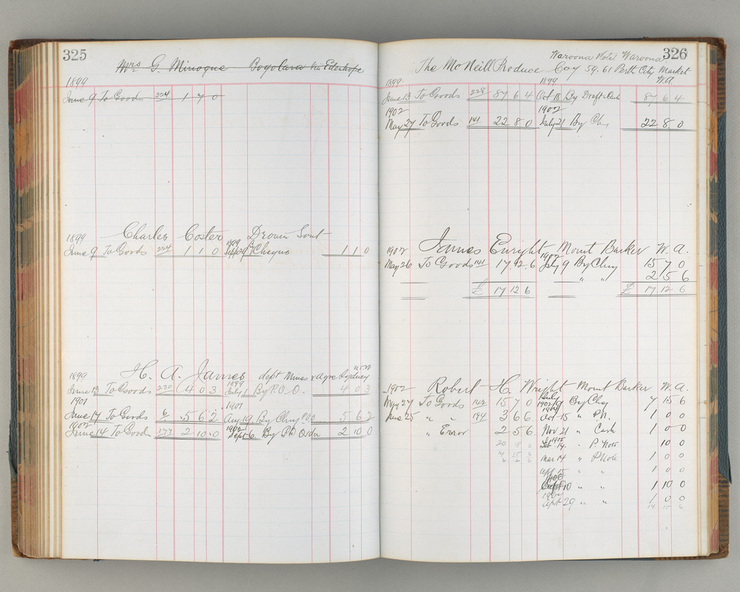 325
Mrs G. Minogue Gogolarra via Edenhope
1899
June 9 To Goods 224 1 7 0
1899 Charles Coster Drouin South
June 9 To Goods 224 1 1 0 1899 Cheque 1 1 0
1899 H. A. James dept Mines & Agre Sydney NSW
June 13 To Goods 230 4 0 3 1899 July By P.O.O. 4 0 3
1901
June 17 To Goods 6 5 6 2 1901 Aug 19 By Chq 5 6 2
1902
June 14 To Goods 177 2 10 0 1902 Sept 6 By P.N. Order 2 10 0
326
Waroona Hotel Waroona
The McNeill Produce Coy 59.61 Perth City Market W.A.
1899 1899
June 13 To Goods 228 87 6 4 Oct 18 By Draft 87 6 4
1902 1902
May 27 To Goods 141 22 8 0 July 21 By Chq 22 8 0
1902 James Enright Mount Barker W.A.
May 26 To Goods 141 17 12 6 1902 July 9 By Chq 15 7 0
" " 2 5 6
£ 17 12 6 £ 17 12 6
1902 Robert H. Wright Mount Barker W.A.
May 27 To Goods 15 7 0 July By Chq 7 15 6
June 25 " " 184 3 6 6 Oct 15 " P.N. 1 0 0
" Error 2 5 6 Nov 21 " Cash 1 0 0
14 " P Note 10 0
Mar 14 " P Note 1 0 0
Apl 1 0 0
10 " " 1 10 0
Apl 29 " " 1 0 0